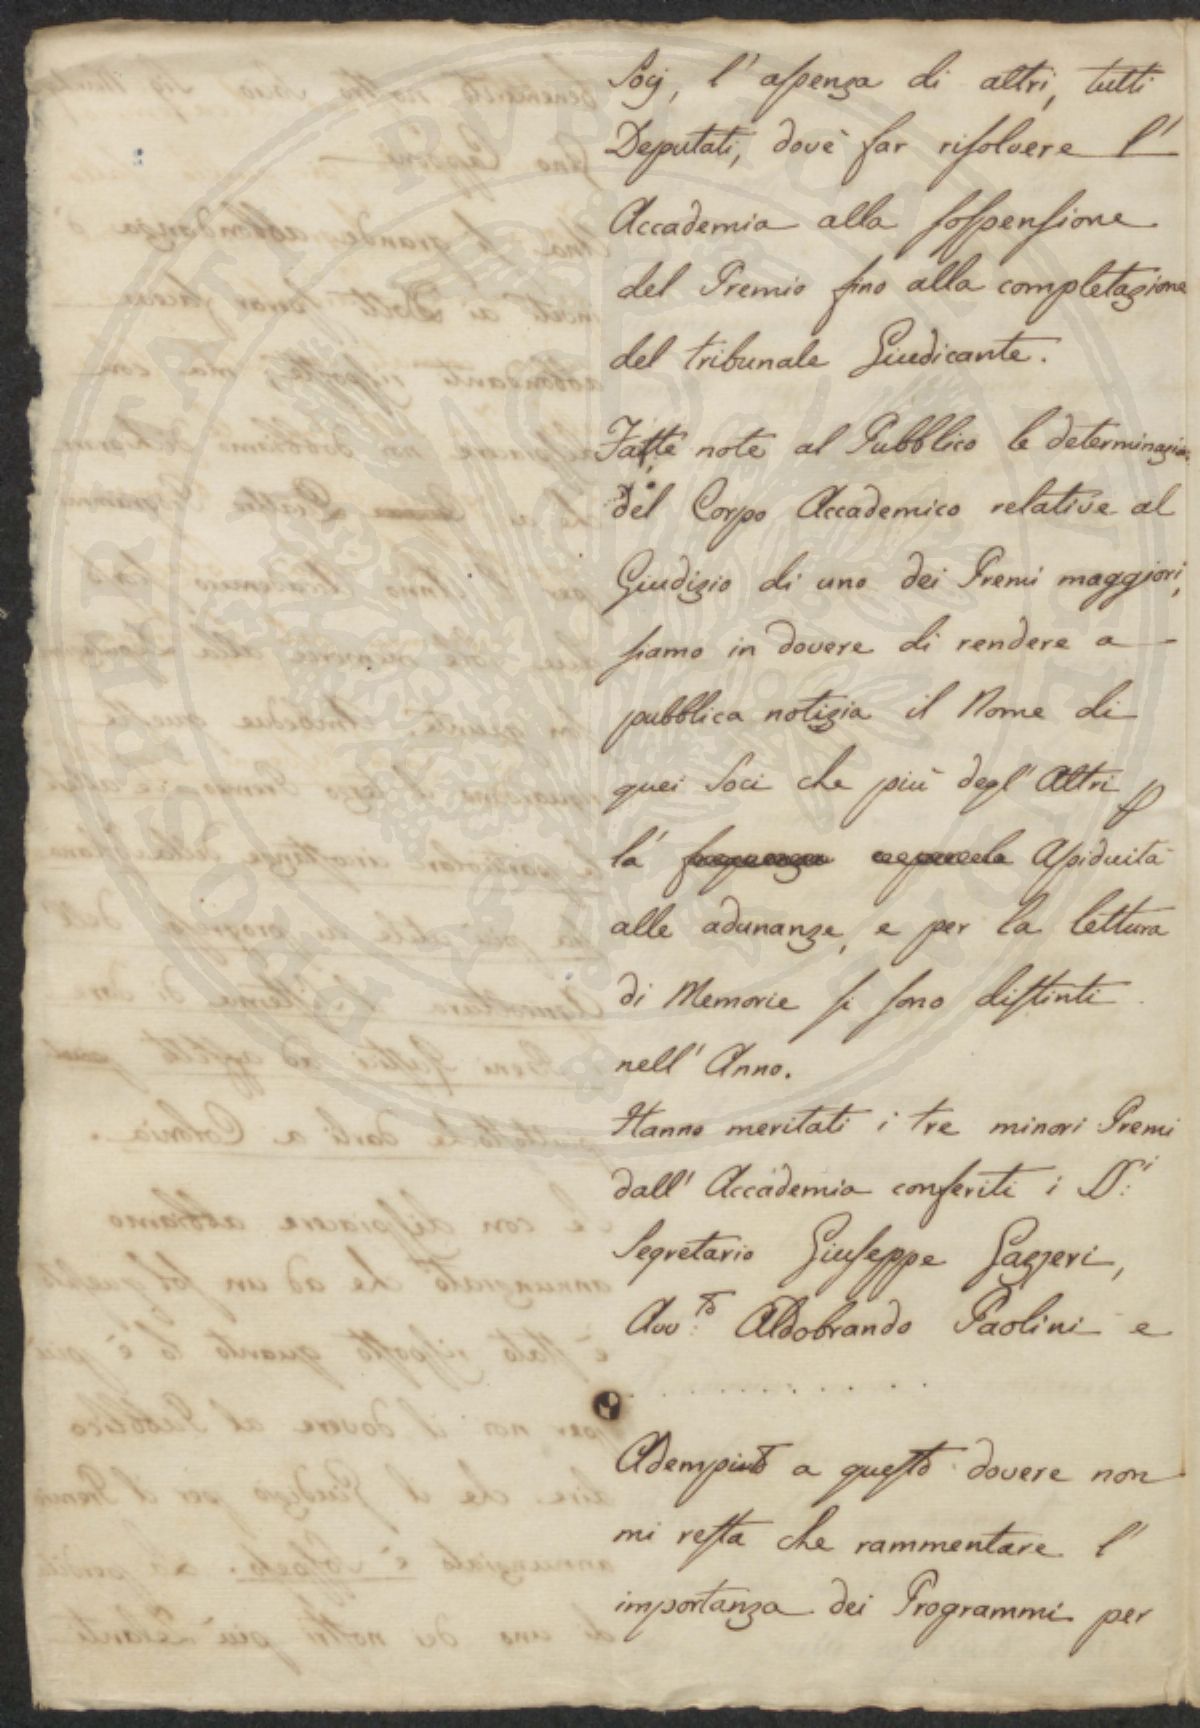 Socj, l'assenza di altri, tutti
Deputati, dovè far risolvere l'
Accademia alla sospensione
del Premio fino alla completazione
del tribunale Giudicante.
Fatte note al Pubblico le determinazion
del Corpo Accademico relative al
Giudizio di uno dei Premi maggiori,
siamo in dovere di rendere a
pubblica notizia il Nome di
quei Soci che più degl'Altri p
la assiduità
alle adunanze, e per la lettura
di Memorie si sono distinti
nell'Anno.
Hanno meritati i tre minori Premi
dall'Accademia conferiti i SS:i
Segretario Giuseppe Gazzeri,
Avv:to Aldobrando Paolini e
. . . . . . . . . . . .
Adempiuto a questo dovere non
mi resta che rammentare l'
importanza dei Programmi per